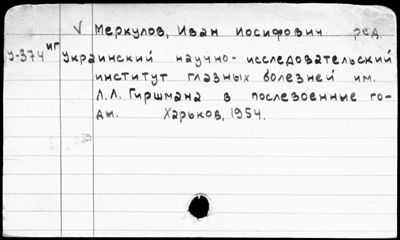 √ Меркулов, Иван Иосифович. ред.
У-374 иг Украинский научно-исследовательский
институт глазных болезней им.
Л.Л. Гиршмана в послевоенные го-
ды. Харьков, 1954.